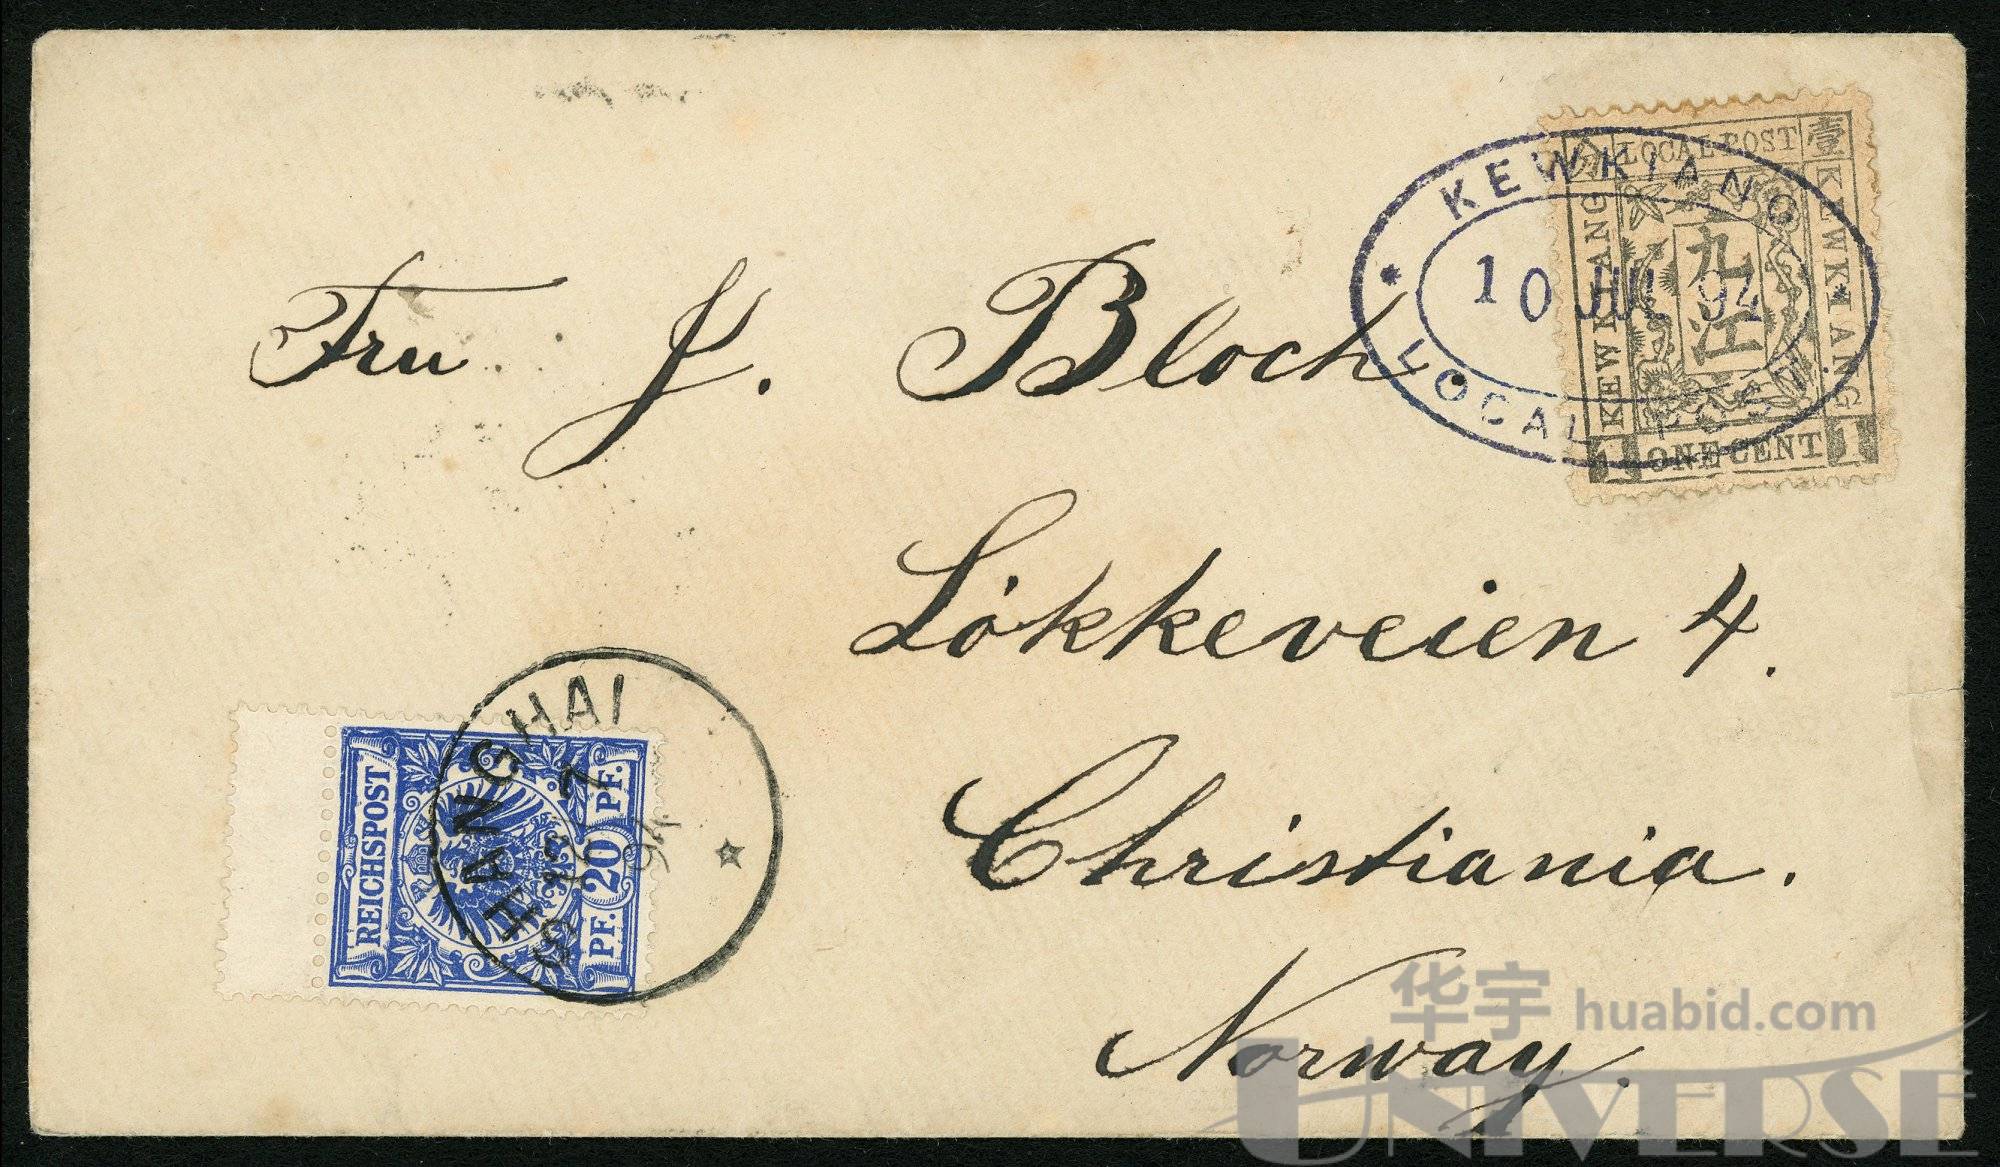 Fru. J. Bloch.
Lökkeveien 4.
Christiania.
Norway.
KEWKIANG
* 10 JUL 94
LOCAL POST
LOCAL POST
壹
KEWKIANG
KEWKIANG
九江
1 ONE CENT 1
SHANGHAI
REICHSPOST
PF. 20 PF.
华宇 huabid.com
UNIVERSE